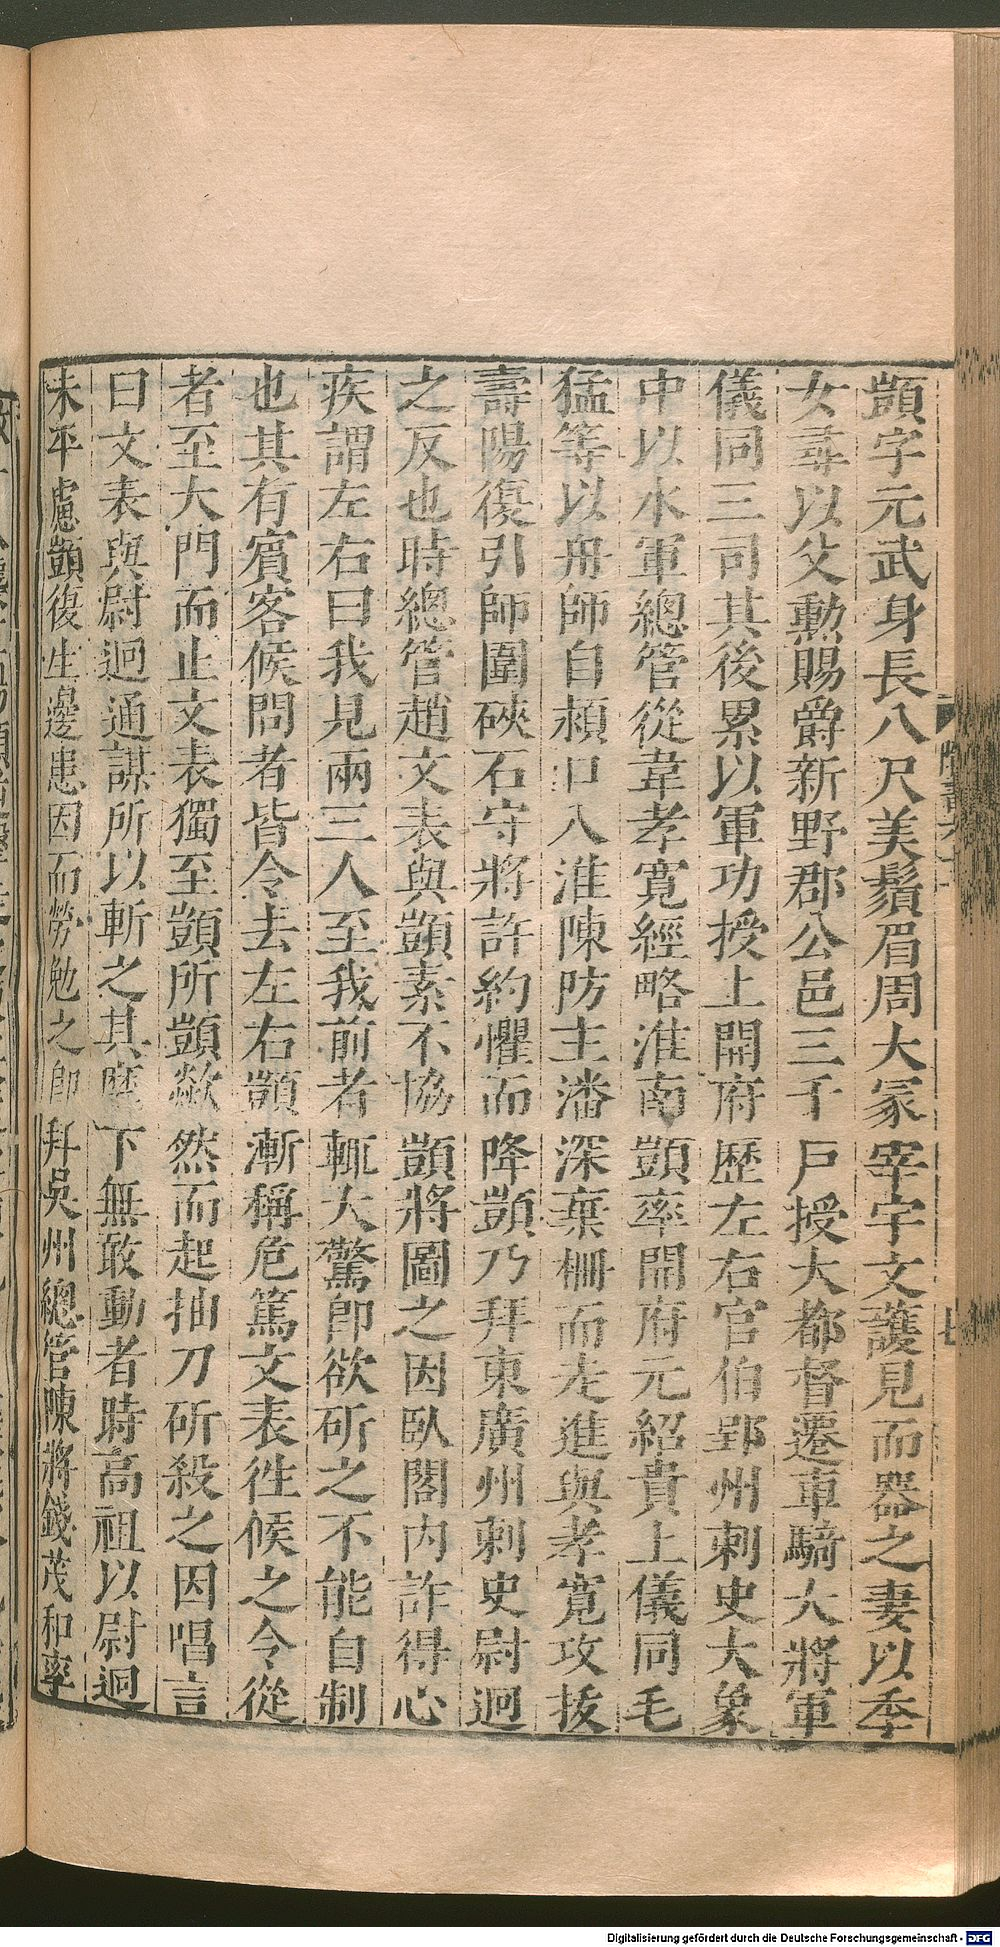 顗字元武身長八尺美鬚眉周大冢宰宇文護見而器之妻以季
女尋以父勳賜爵新野郡公邑三千戶授大都督遷車騎大將軍
儀同三司其後累以軍功授上開府歷左右官伯郢州刺史大象
中以水軍總管從韋孝寬經略淮南顗率開府元紹貴上儀同毛
猛等以舟師自潁口入淮陳防主潘深棄柵而走進與孝寬攻拔
壽陽復引師圍硤石守將許約懼而降顗乃拜東廣州刺史尉迥
之反也時總管趙文表與顗素不協顗將圖之因臥閤內詐得心
疾謂左右曰我見兩三人至我前者輒大驚即欲斫之不能自制
也其有賓客候問者皆令去左右顗漸稱危篤文表往候之令從
者至大門而止文表獨至顗所顗歘然而起抽刀斫殺之因唱言
曰文表與尉迥通謀所以斬之其麾下無敢動者時高祖以尉迥
未平慮顗復生邊患因而勞勉之即拜吳州總管陳將錢茂和率
隋書六十
Digitalisierung gefördert durch die Deutsche Forschungsgemeinschaft - DFG